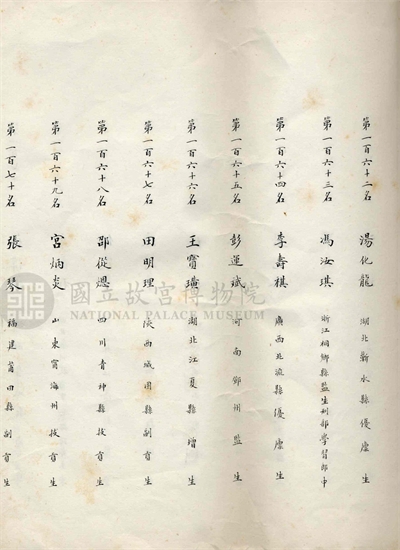 第一百六十二名 湯化龍 湖北蘄水縣優廩生
第一百六十三名 馮汝琪 浙江桐鄉縣監生刑部學習郎中
第一百六十四名 李壽祺 廣西北流縣優廩生
第一百六十五名 彭運斌 河南鄧州監生
第一百六十六名 王寶 湖北江夏縣增生
第一百六十七名 田明理 陝西城固縣副貢生
第一百六十八名 邵從恩 四川青神縣拔貢生
第一百六十九名 宮炳炎 山東寧海州拔貢生
第一百七十名 張琴 福建莆田縣副貢生
國立故宮博物院
NATIONAL PALACE MUSEUM